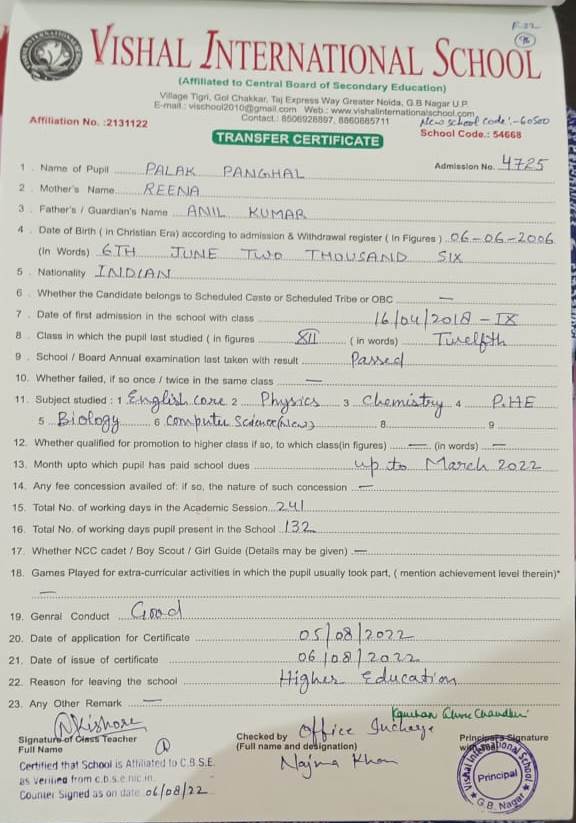 F-22
98
VISHAL INTERNATIONAL SCHOOL
(Affiliated to Central Board of Secondary Education)
Village Tigri, Gol Chakkar, Taj Express Way Greater Noida, G.B Nagar U.P.
E-mail : vischool2010@gmail.com Web.: www.vishalinternationalschool.com
Contact.: 8506928897, 8860885711
New school code :- 60500
Affiliation No. :2131122
School Code.: 54668
TRANSFER CERTIFICATE
1 . Name of Pupil PALAK PANGHAL Admission No. 4725
2 . Mother's Name REENA
3 . Father's / Guardian's Name ANIL KUMAR
4 . Date of Birth ( in Christian Era) according to admission & Withdrawal register ( In Figures ) 06-06-2006
(In Words) 6TH JUNE TWO THOUSAND SIX
5 . Nationality INDIAN
6 . Whether the Candidate belongs to Scheduled Caste or Scheduled Tribe or OBC —
7 . Date of first admission in the school with class 16/04/2018 - IX
8 . Class in which the pupil last studied ( in figures XII ( in words) Twelfth
9 . School / Board Annual examination last taken with result Passed
10. Whether failed, if so once / twice in the same class —
11. Subject studied : 1 English core 2 Physics 3 Chemistry 4 P.HE
5 Biology 6 Computer Science(New) 8 9
12. Whether qualified for promotion to higher class if so, to which class(in figures) — (in words) —
13. Month upto which pupil has paid school dues up to March 2022
14. Any fee concession availed of: if so, the nature of such concession —
15. Total No. of working days in the Academic Session 241
16. Total No. of working days pupil present in the School 132
17. Whether NCC cadet / Boy Scout / Girl Guide (Details may be given) —
18. Games Played for extra-curricular activities in which the pupil usually took part, ( mention achievement level therein)*
—
19. Genral Conduct Good
20. Date of application for Certificate 05/08/2022
21. Date of issue of certificate 06/08/2022
22. Reason for leaving the school Higher Education
23. Any Other Remark —
Nkishore
Signature of Class Teacher
Full Name
Checked by Office Incharge
(Full name and designation)
Najma Khan
Principal's Signature
Certified that School is Affiliated to C.B.S.E.
as verified from c.b.s.e.nic.in.
Counter Signed as on date 06/08/22
Vishal International School
Principal
G.B. Nagar